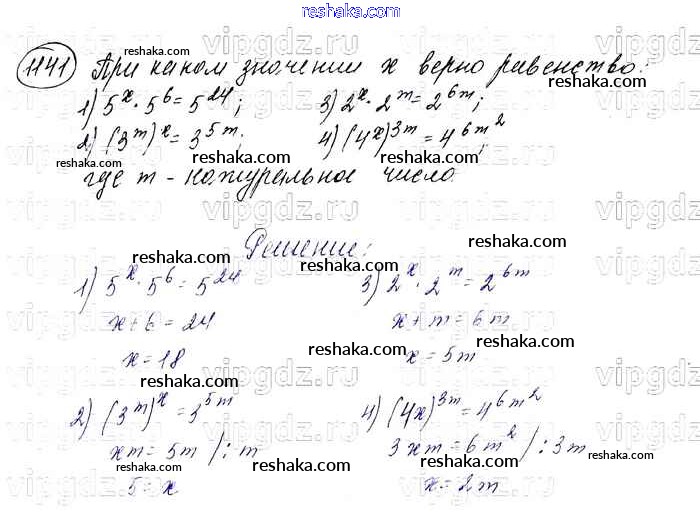 reshaka.com
1141 При каком значении x верно равенство:
1) 5^x · 5^6 = 5^24; 3) 2^x · 2^m = 2^6m;
2) (3^m)^x = 3^5m; 4) (4^x)^3m = 4^6m²;
где m - натуральное число.
Решение:
1) 5^x · 5^6 = 5^24
x + 6 = 24
x = 18
2) (3^m)^x = 3^5m
xm = 5m /: m
5 = x
3) 2^x · 2^m = 2^6m
x + m = 6m
x = 5m
4) (4x)^3m = 4^6m²
3xm = 6m² /: 3m
x = 2m
vipgdz.ru
reshaka.com